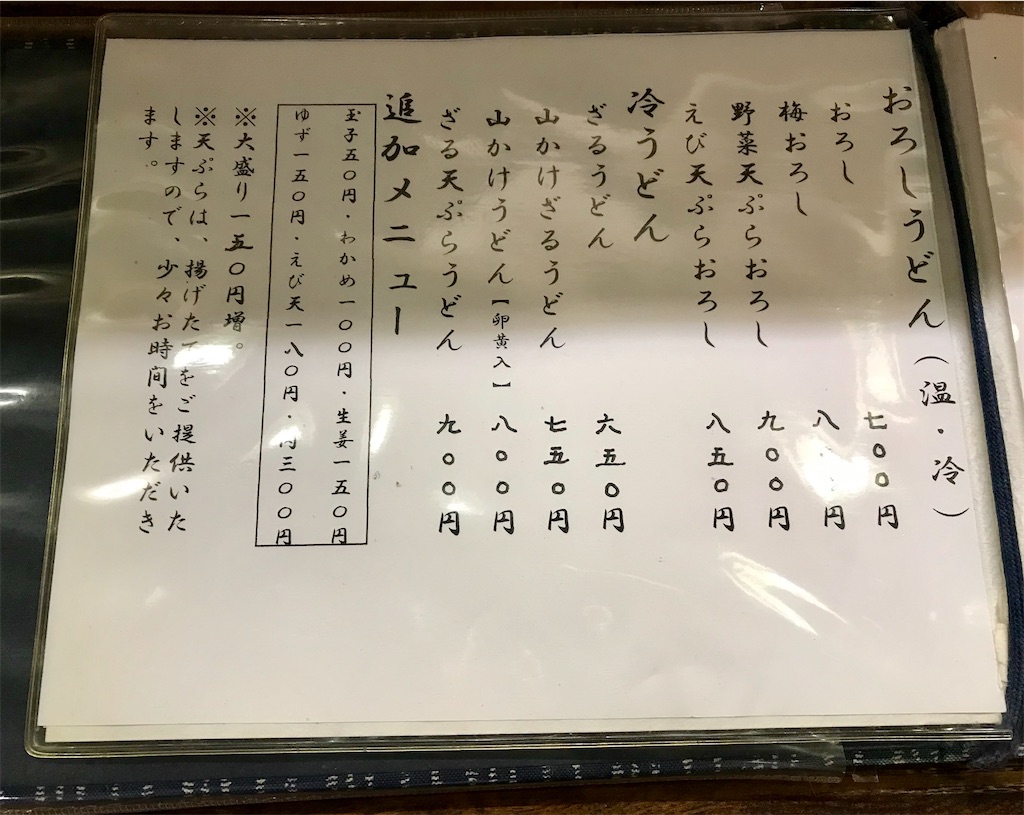 おろしうどん(温・冷)
おろし 七〇〇円
梅おろし 八 円
野菜天ぷらおろし 九〇〇円
えび天ぷらおろし 八五〇円
冷うどん
ざるうどん 六五〇円
山かけざるうどん 七五〇円
山かけうどん【卵黄入】 八〇〇円
ざる天ぷらうどん 九〇〇円
追加メニュー
玉子五〇円・わかめ一〇〇円・生姜一五〇円
ゆず一五〇円・えび天一八〇円・肉三〇〇円
※大盛り一五〇円増。
※天ぷらは、揚げたてをご提供いた
しますので、少々お時間をいただき
ます。